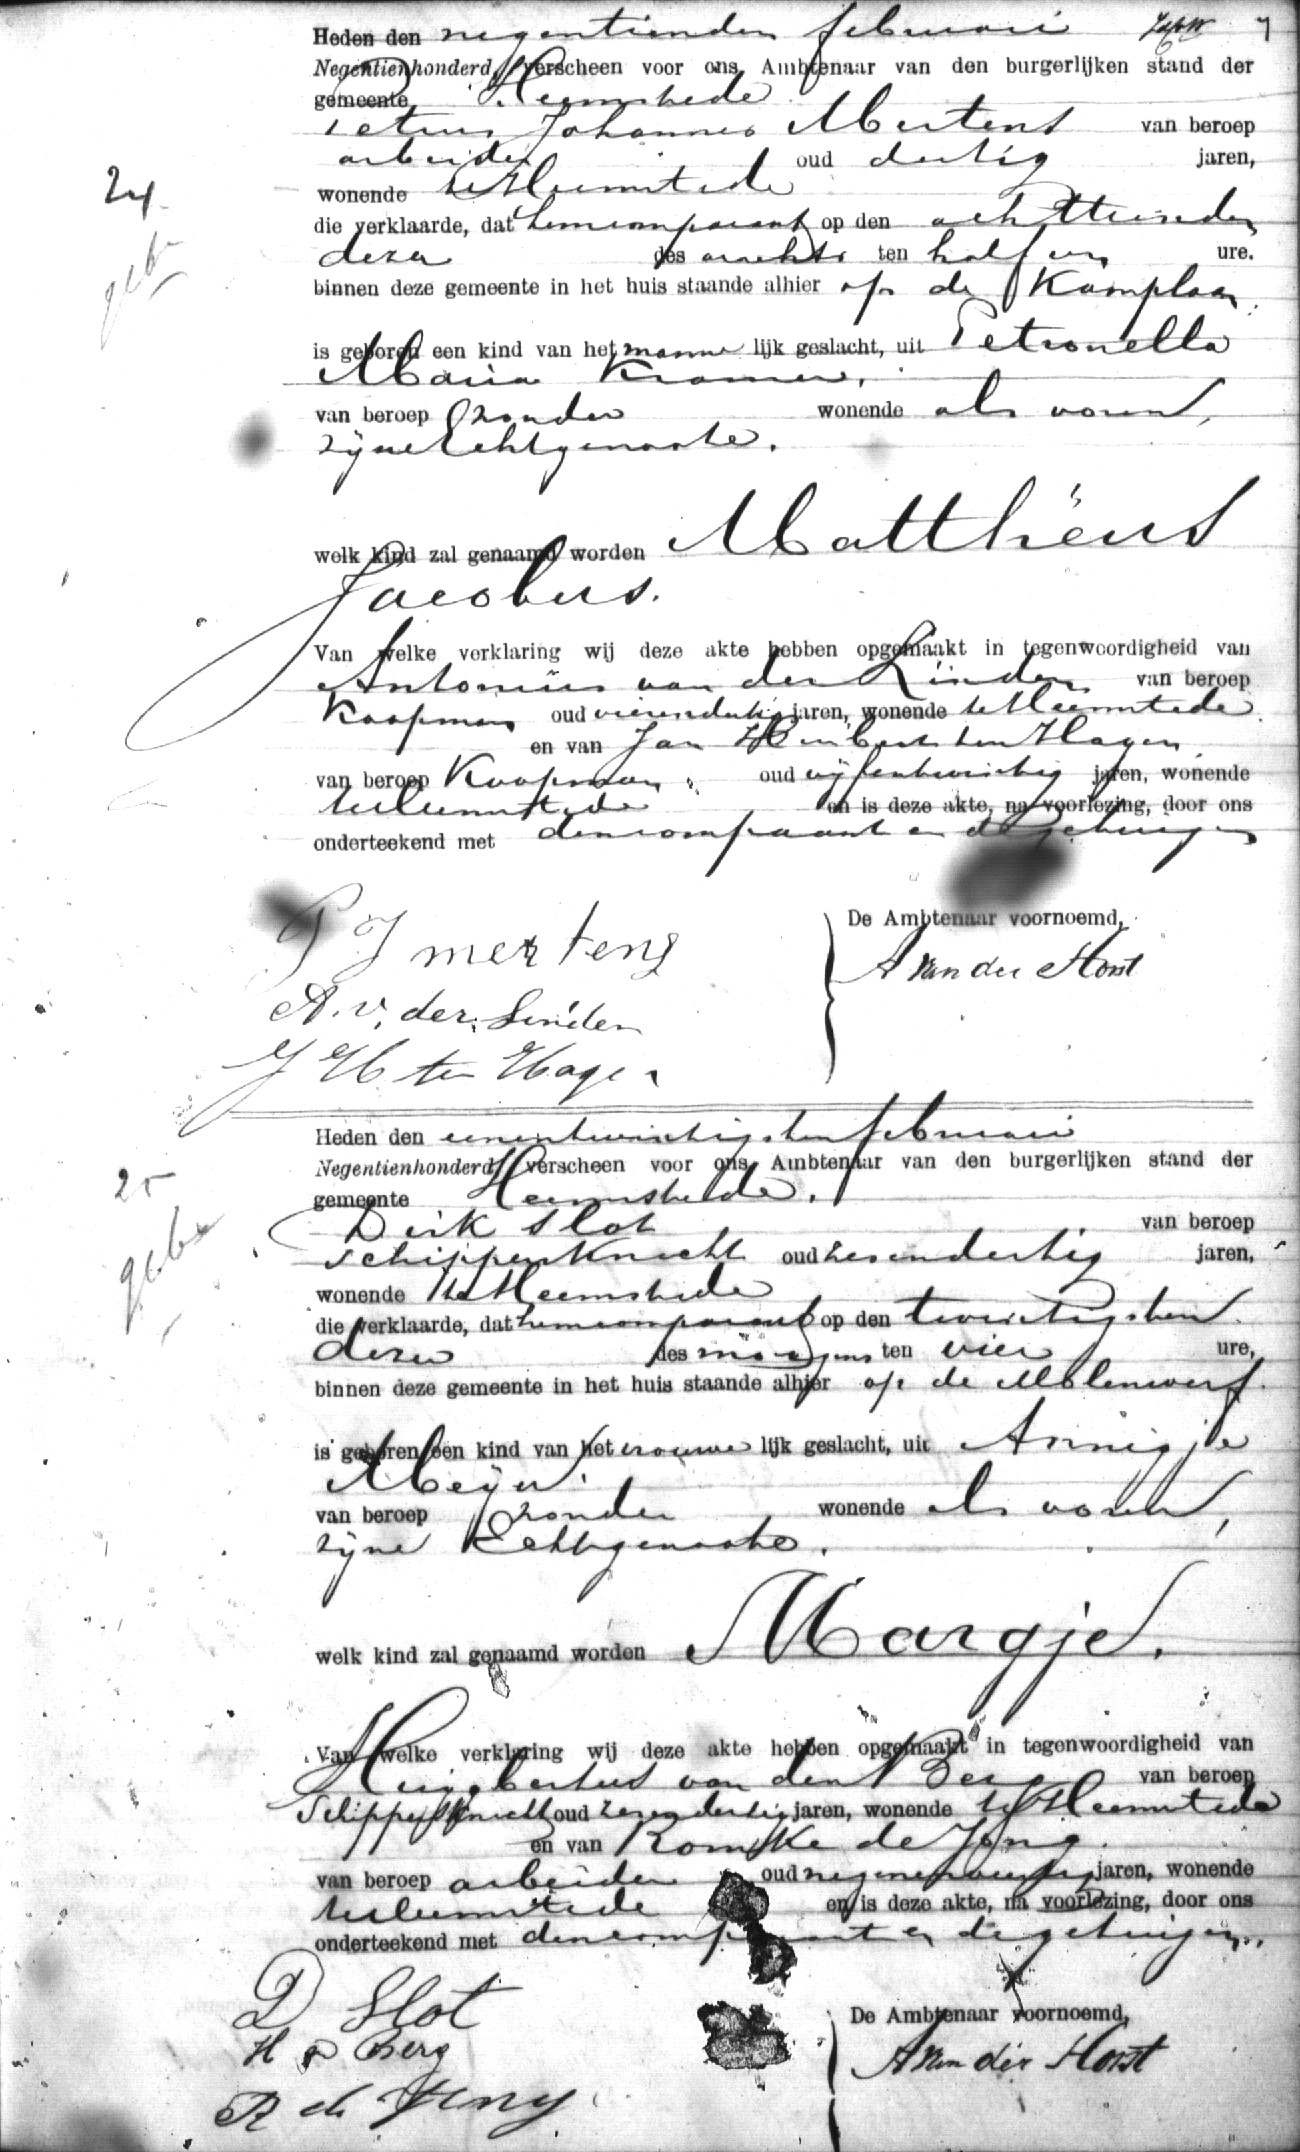 Heden den negentienden februari 7
Negentienhonderd, verscheen voor ons, Ambtenaar van den burgerlijken stand der
gemeente Heemstede
Petrus Johannes Mertens van beroep
arbeider oud dertig jaren,
24
wonende te Heemstede
die verklaarde, dat hem comparant op den achttienden
dezer des nachts ten half een ure.
binnen deze gemeente in het huis staande alhier op de Kamplaan
is geboren een kind van het manne lijk geslacht, uit Petronella
Maria Kramer,
van beroep zonder wonende als voren,
zijne Echtgenoote.
welk kind zal genaamd worden Matthëus
Jacobus.
Van welke verklaring wij deze akte hebben opgemaakt in tegenwoordigheid van
Antonius van der Linden van beroep
Koopman oud vierendertig jaren, wonende te Heemstede
en van Jan Huibert ten Hagen
van beroep Koopman, oud vijfentwintig jaren, wonende
te Heemstede en is deze akte, na voorlezing, door ons
onderteekend met den comparant en de getuigen
De Ambtenaar voornoemd,
P J mertens
A van der Horst
A. v. der. Linden
J H ten Hagen
Heden den eenentwintigsten februari
Negentienhonderd, verscheen voor ons, Ambtenaar van den burgerlijken stand der
25
gemeente Heemstede.
Dirk Slot van beroep
schippersknecht oud zesendertig jaren,
wonende te Heemstede
die verklaarde, dat hem comparant op den twintigsten
dezer des morgens ten vier ure,
binnen deze gemeente in het huis staande alhier op de Molenwerf
is geboren een kind van het vrouwe lijk geslacht, uit Annigje
Meijer
van beroep zonder wonende als voren,
zijne Echtgenoote.
welk kind zal genaamd worden Margje.
Van welke verklaring wij deze akte hebben opgemaakt in tegenwoordigheid van
Huigbertus van den Berg van beroep
Schippersknecht oud zesendertig jaren, wonende te Heemstede
en van Romke de Jong
van beroep arbeider oud jaren, wonende
te Heemstede en is deze akte, na voorlezing, door ons
onderteekend met den comparant en de getuigen.
D Slot
De Ambtenaar voornoemd,
H Berg
A van der Horst
R de Jong